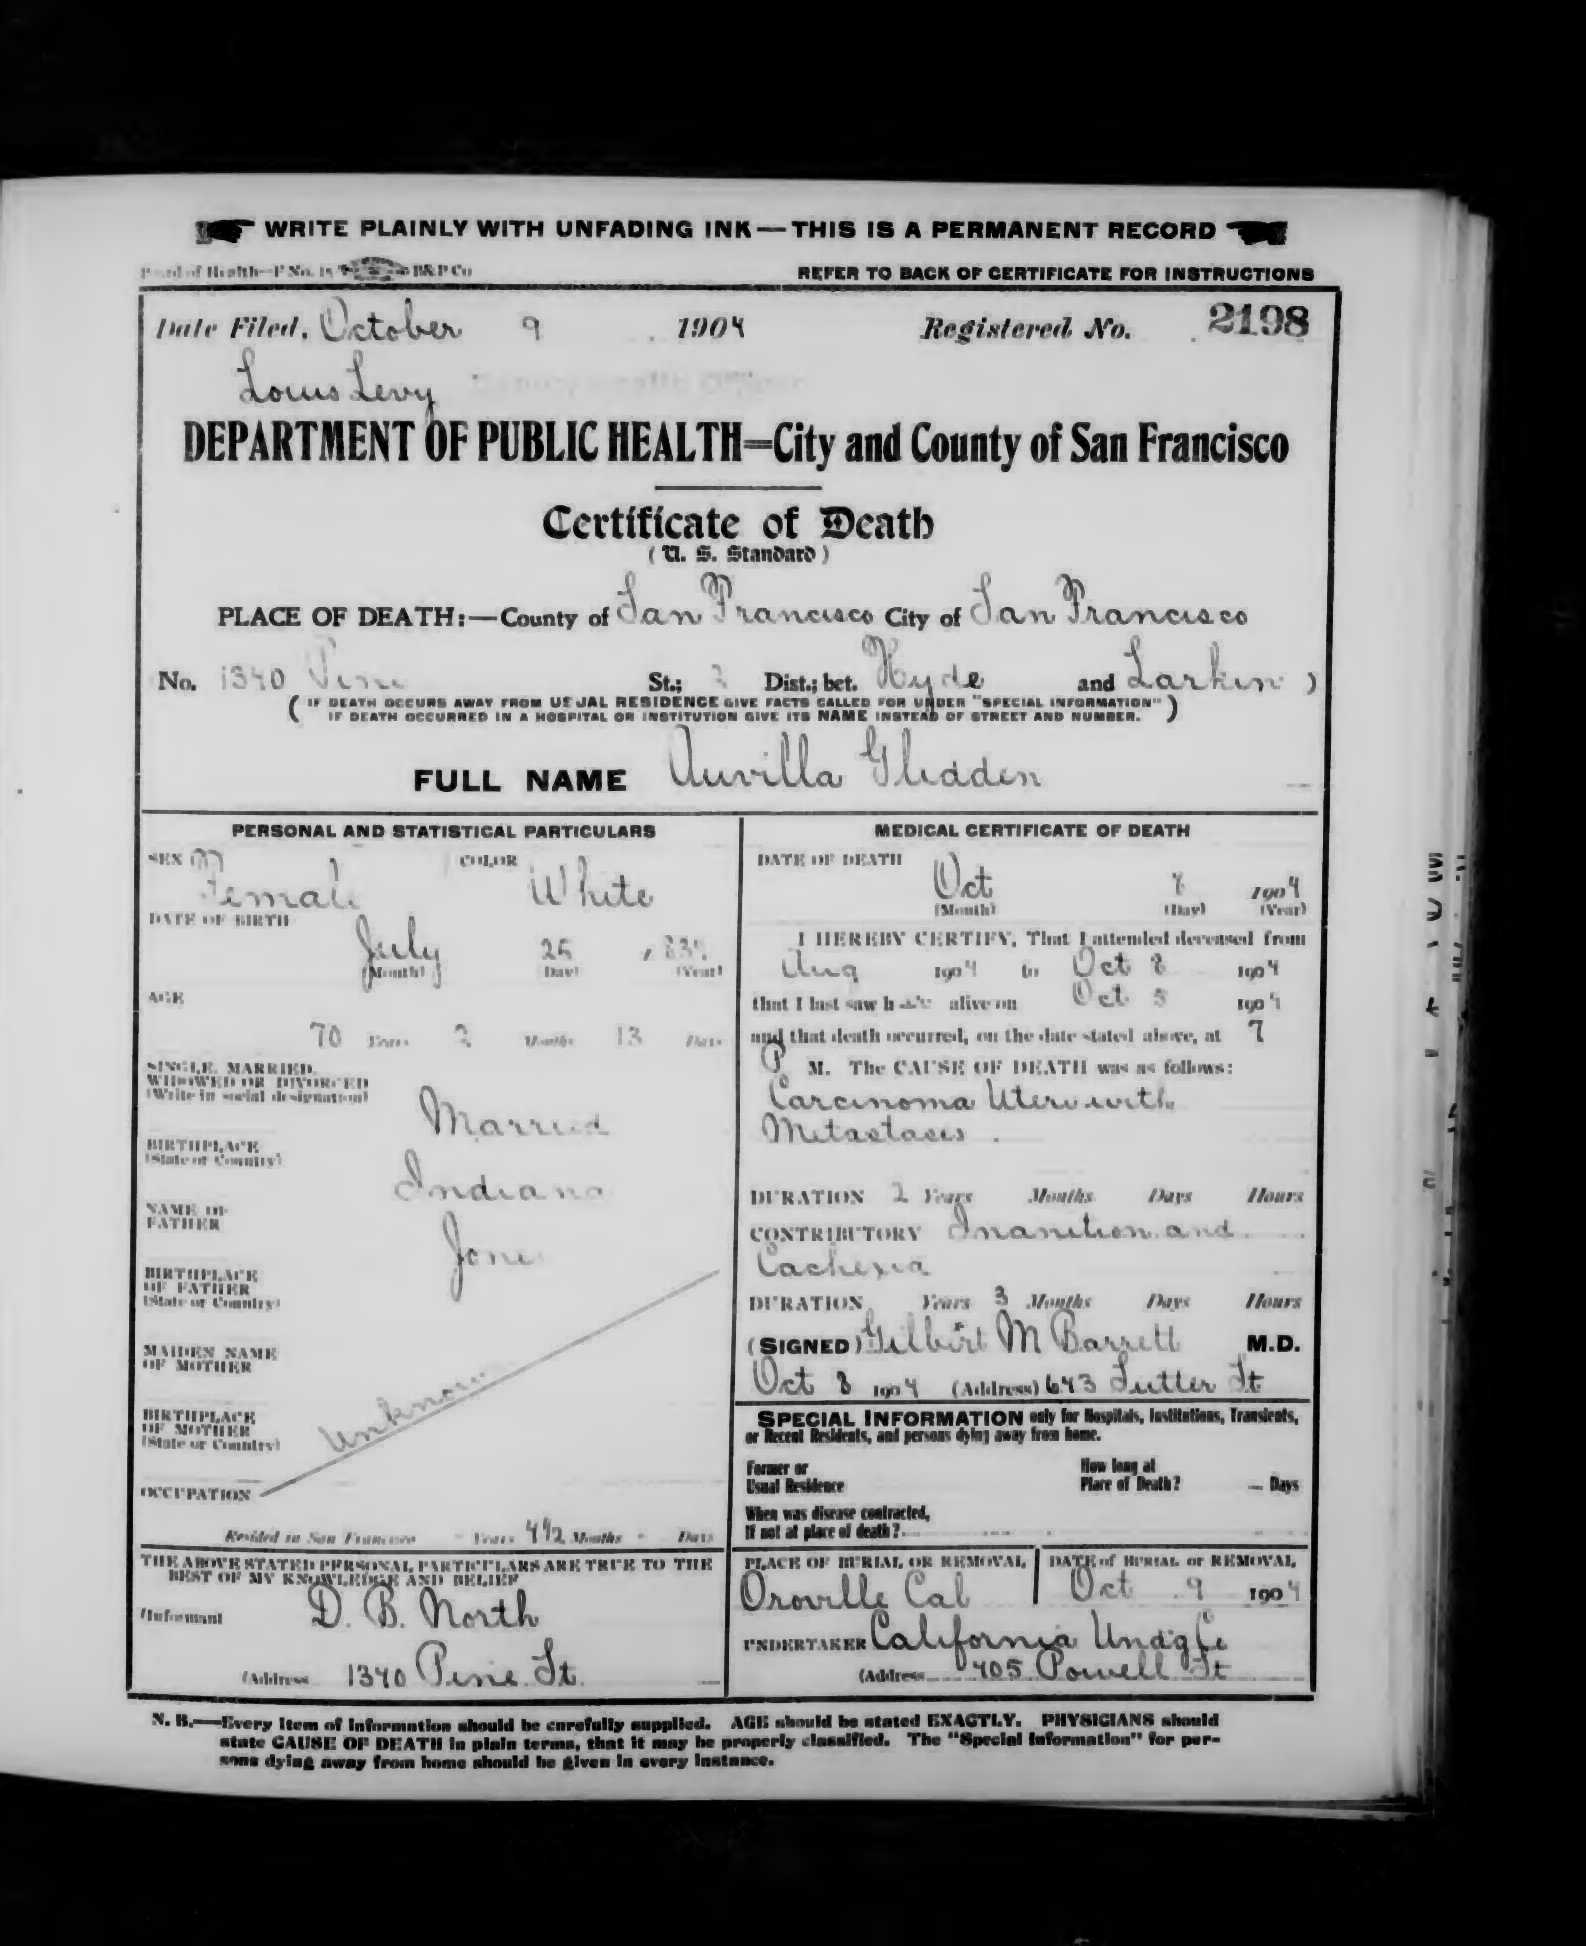 WRITE PLAINLY WITH UNFADING INK — THIS IS A PERMANENT RECORD
Board of Health—P No. 15 B&P Co
REFER TO BACK OF CERTIFICATE FOR INSTRUCTIONS
Date Filed, October 9 1904 Registered No. 2198
Louis Levy
DEPARTMENT OF PUBLIC HEALTH=City and County of San Francisco
Certificate of Death
(U. S. Standard)
PLACE OF DEATH:—County of San Francisco City of San Francisco
No. 1340 Pine St.; 2 Dist.; bet. Hyde and Larkin )
( IF DEATH OCCURS AWAY FROM USUAL RESIDENCE GIVE FACTS CALLED FOR UNDER "SPECIAL INFORMATION" )
( IF DEATH OCCURRED IN A HOSPITAL OR INSTITUTION GIVE ITS NAME INSTEAD OF STREET AND NUMBER. )
FULL NAME Auvilla Glidden
PERSONAL AND STATISTICAL PARTICULARS
SEX Female COLOR White
DATE OF BIRTH
July 25
(Month) (Day) (Year)
AGE
70 Years 2 Months 13 Days
SINGLE, MARRIED,
WIDOWED OR DIVORCED
(Write in social designation)
Married
BIRTHPLACE
(State or Country)
Indiana
NAME OF
FATHER
Jone
BIRTHPLACE
OF FATHER
(State or Country)
MAIDEN NAME
OF MOTHER
Unknown
BIRTHPLACE
OF MOTHER
(State or Country)
OCCUPATION
Resided in San Francisco - Years 4 1/2 Months - Days
THE ABOVE STATED PERSONAL PARTICULARS ARE TRUE TO THE
BEST OF MY KNOWLEDGE AND BELIEF
(Informant D. B. North
(Address 1340 Pine St.
MEDICAL CERTIFICATE OF DEATH
DATE OF DEATH
Oct 8 1904
(Month) (Day) (Year)
I HEREBY CERTIFY, That I attended deceased from
Aug 1904 to Oct 8 1904
that I last saw h er alive on Oct 5 1904
and that death occurred, on the date stated above, at 7
P M. The CAUSE OF DEATH was as follows:
Carcinoma Uteri with
Metastasis .
DURATION 2 Years Months Days Hours
CONTRIBUTORY Inanition and
Cachexia
DURATION Years 3 Months Days Hours
(SIGNED) Gilbert M Barrett M.D.
Oct 8 1904 (Address) 643 Sutter St
SPECIAL INFORMATION only for Hospitals, Institutions, Transients,
or Recent Residents, and persons dying away from home.
Former or
Usual Residence
How long at
Place of Death? — Days
When was disease contracted,
If not at place of death?
PLACE OF BURIAL OR REMOVAL DATE of BURIAL or REMOVAL
Oroville Cal Oct 9 1904
UNDERTAKER California Undg Co
(Address 405 Powell St
N. B.—Every item of information should be carefully supplied. AGE should be stated EXACTLY. PHYSICIANS should
state CAUSE OF DEATH in plain terms, that it may be properly classified. The "Special Information" for per-
sons dying away from home should be given in every instance.